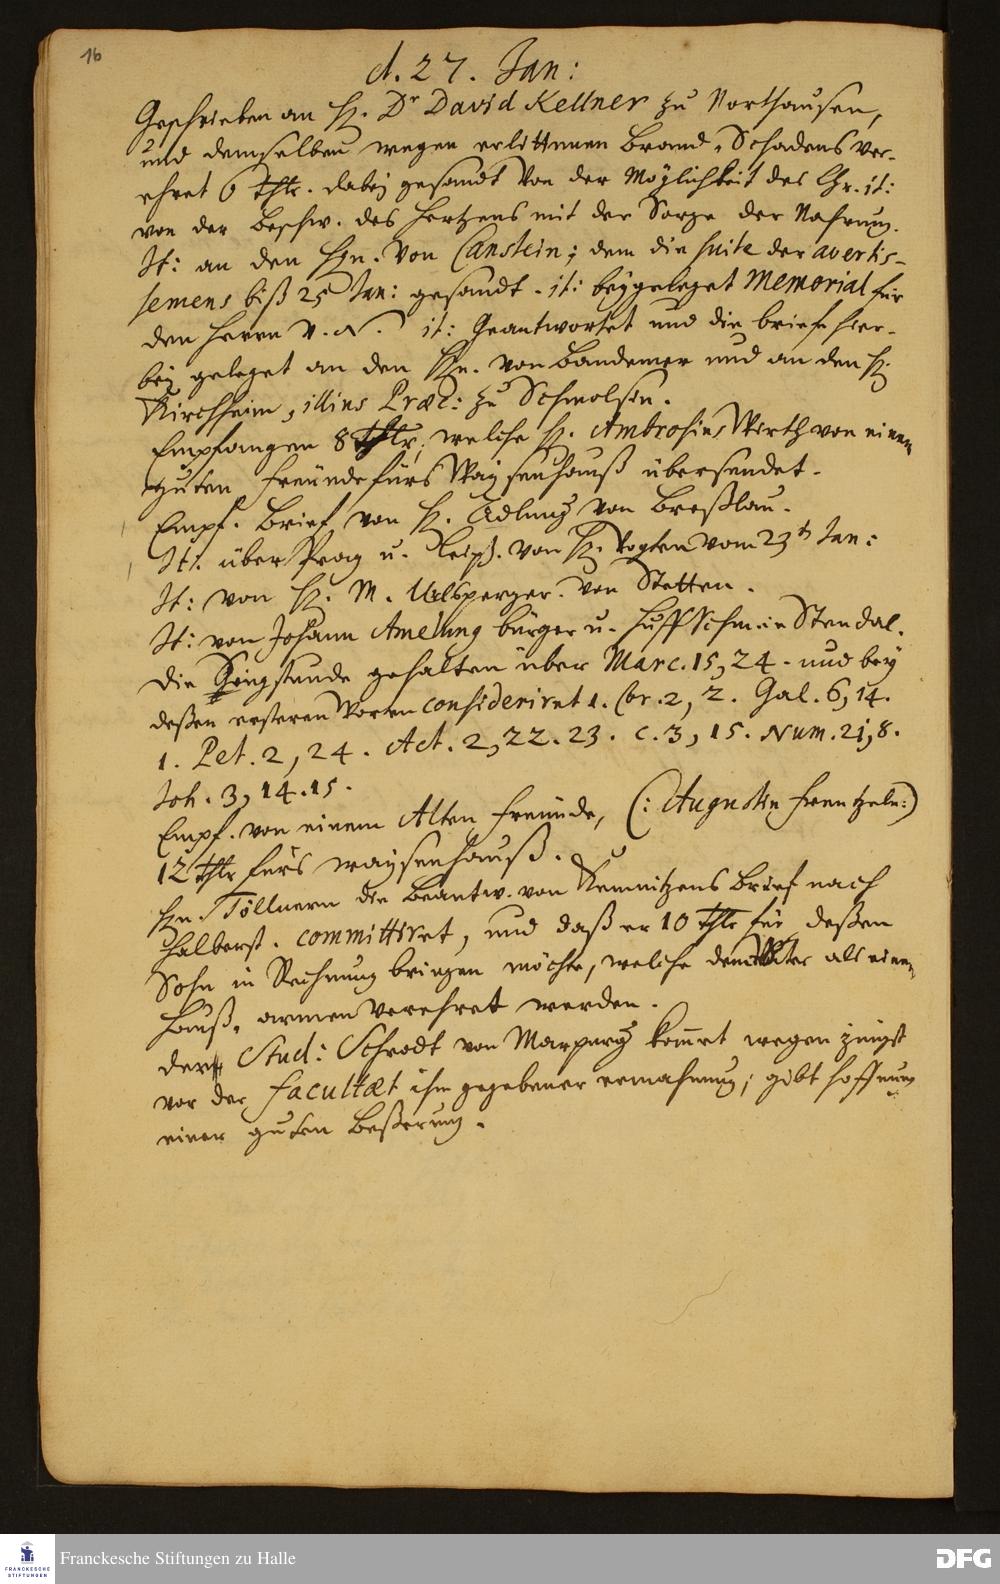 16
d. 27. Jan:
Geschrieben an H. Dr David Kellner zu Northausen,
und demselben wegen erlittenen Brand-Schadens ver-
ehret 6 Thlr. dabey gesandt von der Möglichkeit des Chr. it:
von der Beschw. des Hertzens mit der Sorge der Nahrung.
It: an den Hrn. von Canstein; dem die suite der avertis-
semens biß 25 Jan: gesandt. it: beygeleget Memorial für
den Herrn v. N. it: Geantwortet und die briefe hier-
bey geleget an den Hrn. von Bandemer und an den H.
Kirchheim, illius Præc: zu Schmolsin.
Empfangen 8 Thlr, welche H. Ambrosius Wirth von einem
guten Freunde fürs Waysenhauß übersendet.
Empf. Brief von H. Adlung von Breßlau.
It: über Prag u. Leipz. von H. Vogten vom 23t Jan:
It: von H. M. Urlsperger. von Stetten.
It: von Johann Amelung bürger u. Huffschm. in Stendal.
Die Singstunde gehalten über Marc. 15, 24. und bey
deßen ersteren Worten consideriret 1. Cor. 2, 2. Gal. 6, 14.
1. Pet. 2, 24. Act. 2, 22. 23. c. 3, 15. Num. 21, 8.
Joh. 3, 14. 15.
Empf. von einem Alten Freunde, (: Augustin Frentzeln:)
12 Thlr fürs waysenhauß.
Hrn. Töllnern die Beantw. von Kemnitzens Brief nach
Halberst. committiret, und daß er 10 Thlr für deßen
Sohn in Rechnung bringen möchte, welche dem Vater als einem
Hauß-armen verehret werden.
der Stud: Schrodt von Marpurg kommt wegen jüngst
vor der Facultæt ihm gegebener ermahnung; gibt hoffnung
einer guten Beßerung.
FRANCKESCHE
STIFTUNGEN
Franckesche Stiftungen zu Halle
DFG